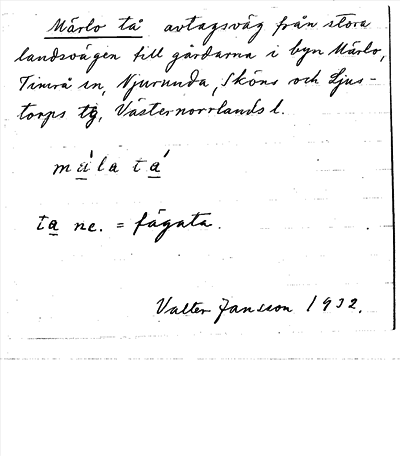 Märlo tå avtagsväg från stora
landsvägen till gårdarna i byn Märlo,
Timrå sn, Njurunda, Sköns och Ljus-
torps tg, Västernorrlands l.
ta ne. = fägata.
Valter Jansson 1932.